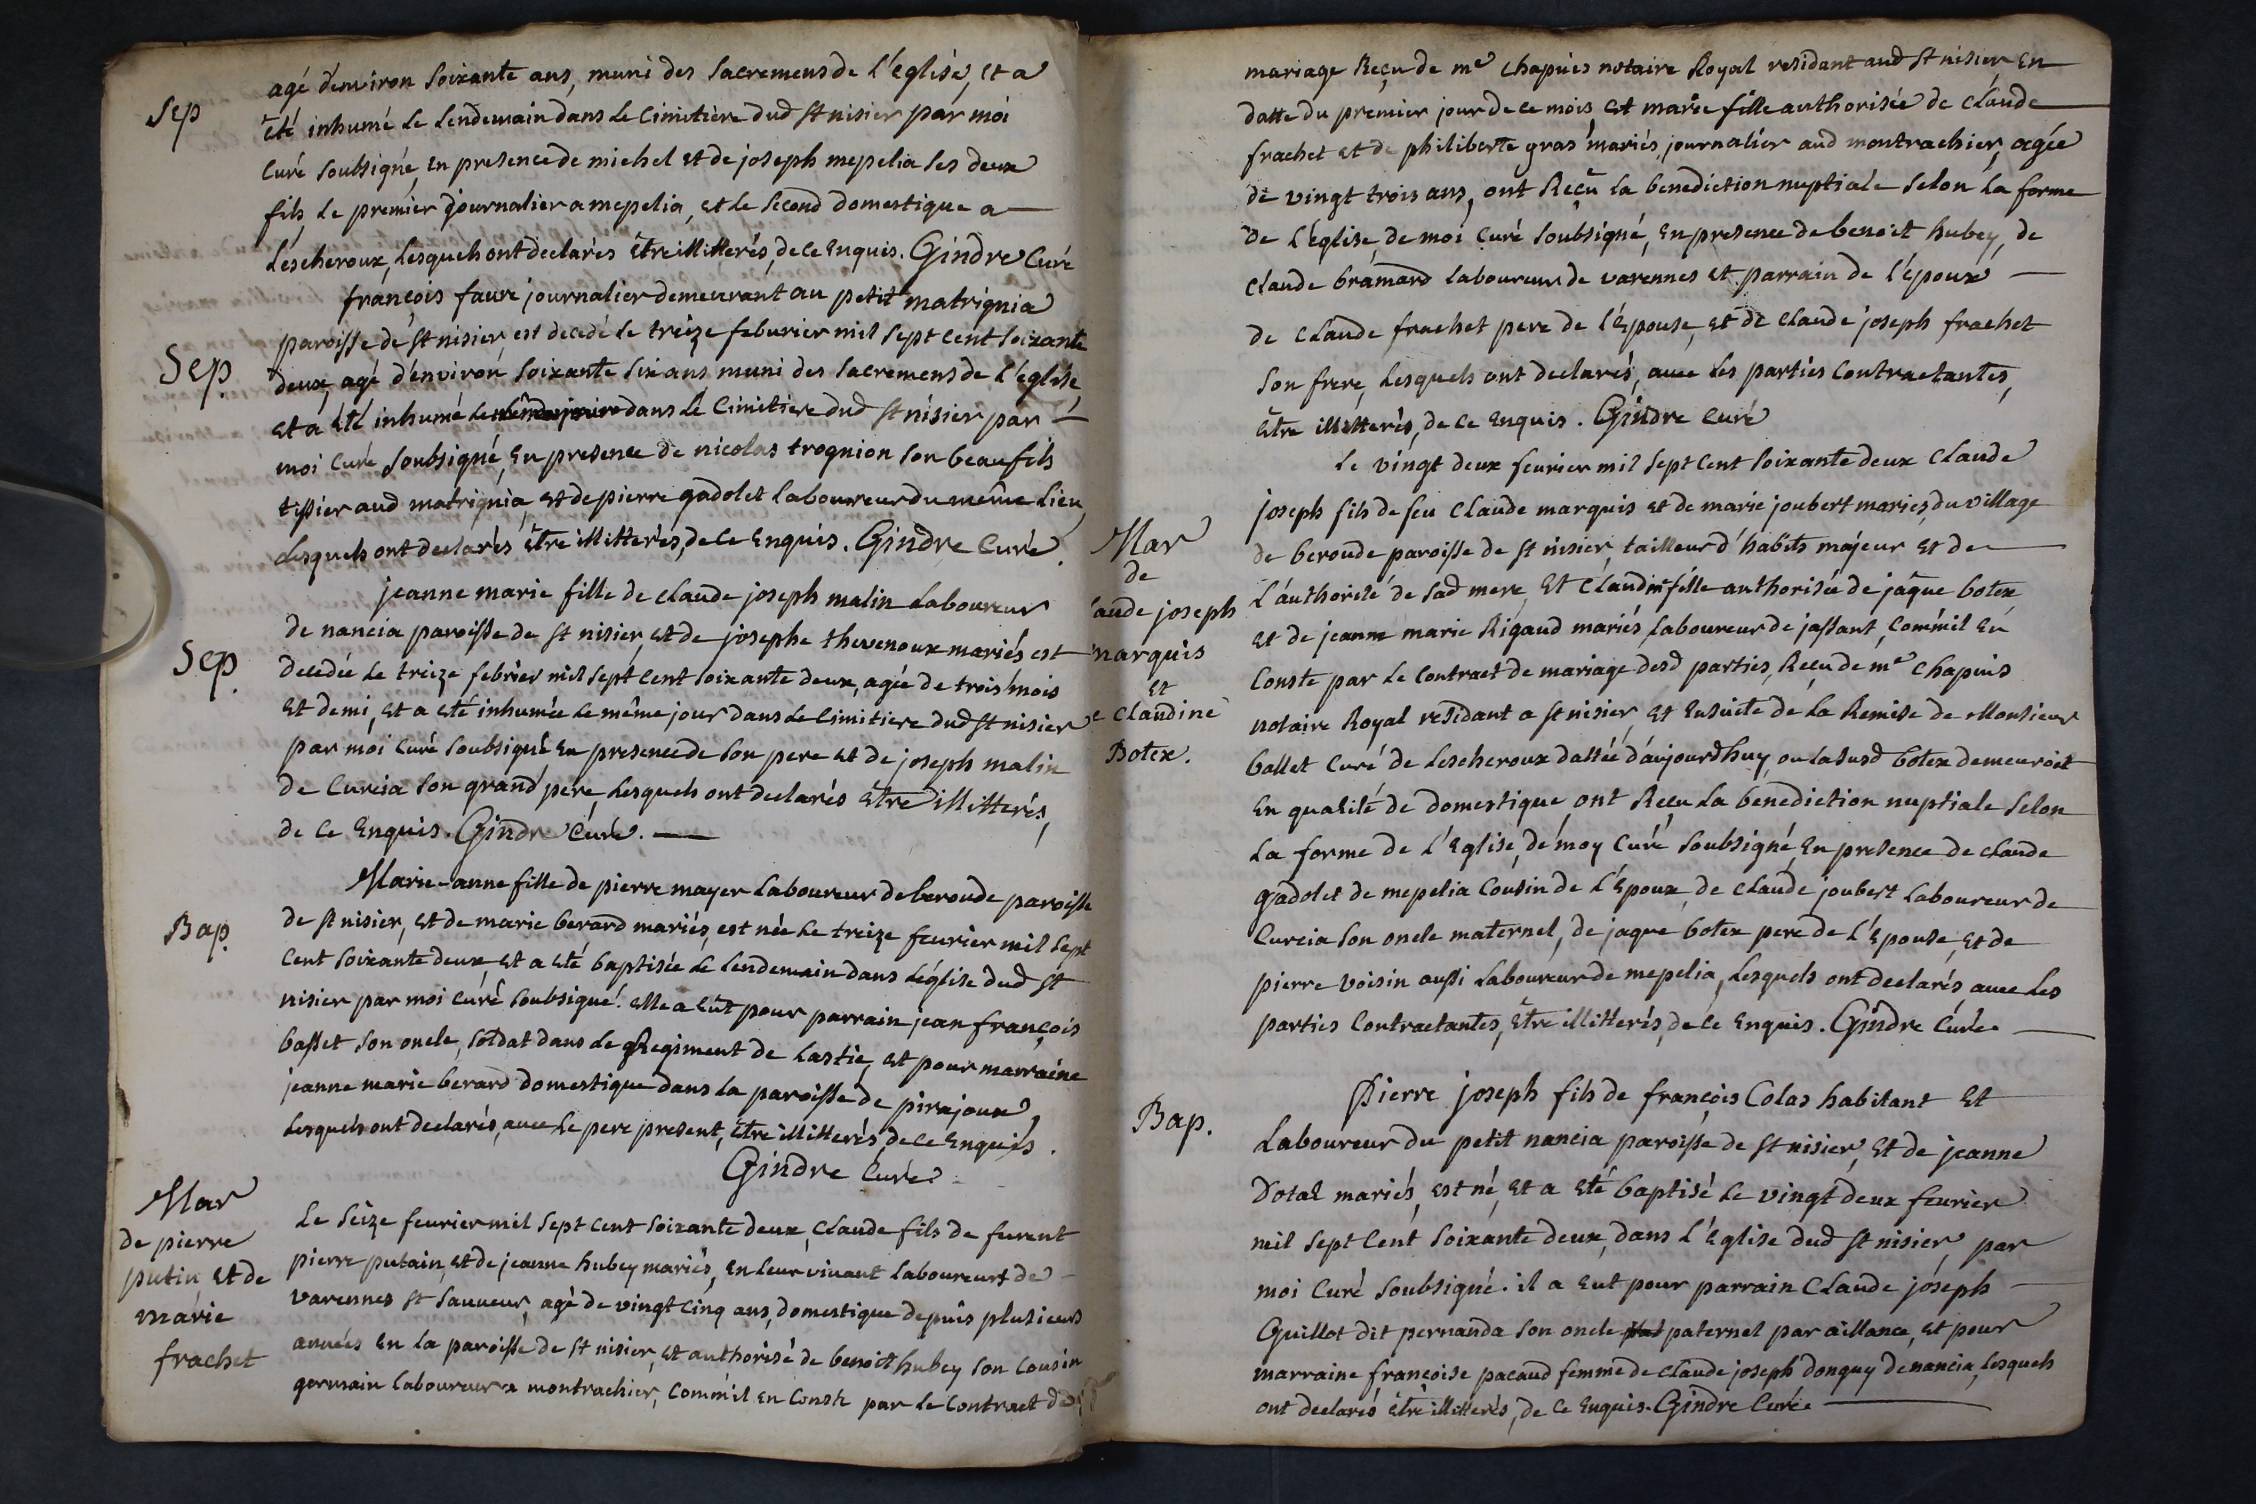 agé d'environ soixante ans, muni des sacremens de l'eglise, et a
Sep
été inhumé le lendemain dans le cimetière dud st nisier par moi
curé soubsigné, en presence de michel et de joseph mepelia ses deux
fils le premier journalier a mepelia, et le second domestique a
Lescheroux, lesquels ont déclarés être illitterés, de ce enquis. Gindre Curé
françois faure journalier demeurant au petit matrignia
paroisse de st nisier est decedé le treize feburier mil sept cent soixante
Sep.
deux, agé d'environ soixante six ans, muni des sacremens de l'église,
et a été inhumé le dans le cimitiere dud st nisier par
moi curé soubsigné, en presence de nicolas trognion son beaufils
tissier aud matrignia, et de pierre gadolet laboureur du même lieu,
lesquels ont declarés être illitterés, de ce enquis. Gindre Curé.
jeanne marie fille de claude joseph malin laboureur
de nancia paroisse de st nisier, et de josephe thevenoux mariés est
Sep.
decedée le treize febrier mil sept cent soixante deux, agée de trois mois
et demi, et a eté inhumée le même jour dans le cimitiere dud st nisier
par moi curé soubsigné en presence de son pere et de joseph malin
de Curcia son grand pere, lesquels ont declarés être illitterés,
de ce enquis. Gindre Curé.
Marie-anne fille de pierre mayer laboureur de beroude paroisse
Bap.
de st nisier, et de marie berard mariés, est née le treize feurier mil sept
cent soixante deux, et a eté baptisée le lendemain dans l'église dud st
nisier par moi curé soubsigné. elle a eut pour parrain jean françois
basset son oncle, soldat dans le Regiment de Lastic, et pour marraine
jeanne marie berard domestique dans la paroisse de pirajoux,
lesquels ont declarés, avec le pere present, être illitterés de ce enquis.
Gindre Curé
Mar
de pierre
putin et de
marie
frachet
le seize feurier mil sept cent soixante deux, claude fils de furent
pierre putain, et de jeanne hubey mariés, en leur vivant laboureurs de
varennes st sauveur, agé de vingt cinq ans, domestique depuis plusieurs
années en la paroisse de st nisier, et authorisé de benoit hubey son cousin
germain laboureur a montrachier, comm'il en conste par le contract de
mariage Reçu de me chapuis notaire Royal residant aud st nisier en
datte du premier jour de ce mois, et marie fille authorisée de claude
frachet et de philiberte gras mariés, journalier aud montrachier, agée
de vingt trois ans, ont Reçu la benediction nuptiale selon la forme
de l'église, de moi curé soubsigné, en presence de benoit hubey, de
claude bramard laboureur de varennes et parrain de l'époux
de claude frachet pere de l'épouse, et de claude joseph frachet
son frere, lesquels ont declarés, avec les parties contractantes,
être illitterés, de ce enquis. Gindre curé
le vingt deux feurier mil sept cent soixante deux claude
Mar
de
laude joseph
marquis
et
e claudine
Botex.
joseph fils de feu claude marquis et de marie joubert mariés, du village
de beroude paroisse de st nisier tailleur d'habits majeur et de
l'authorité de sad mere, et claudine fille authorisée de jaque botex
et de jeanne marie Rigaud mariés, laboureur de jassant, comm'il en
conste par le contract de mariage desd parties, Reçu de me chapuis
notaire Royal residant a st nisier, et ensuite de la Remise de Monsieur
ballet curé de lescheroux dattée d'aujourdhuy, ou lasusd botex demeuroit
en qualité de domestique, ont Reçu la benediction nuptiale selon
la forme de l'église, de moy curé soubsigné, en presence de claude
gadolet de mepelia cousin de l'époux, de claude joubert laboureur de
Curcia son oncle maternel, de jaque botex pere de l'épouse, et de
pierre voisin aussi laboureur de mepelia, lesquels ont declarés, avec les
parties contractantes, être illitterés, de ce enquis. Gindre Curé
Pierre joseph fils de françois Colas habitant et
Bap.
laboureur du petit nancia paroisse de st nisier, et de jeanne
Dotal mariés, est né, et a eté baptisé le vingt deux feurier
mil sept cent soixante deux, dans l'église dud st nisier, par
moi curé soubsigné. il a eut pour parrain claude joseph
Guillot dit pernanda son oncle paternel par aillance, et pour
marraine françoise pacaud femme de claude joseph donguy de nancia, lesquels
ont declarés être illitterés, de ce enquis. Gindre Curé